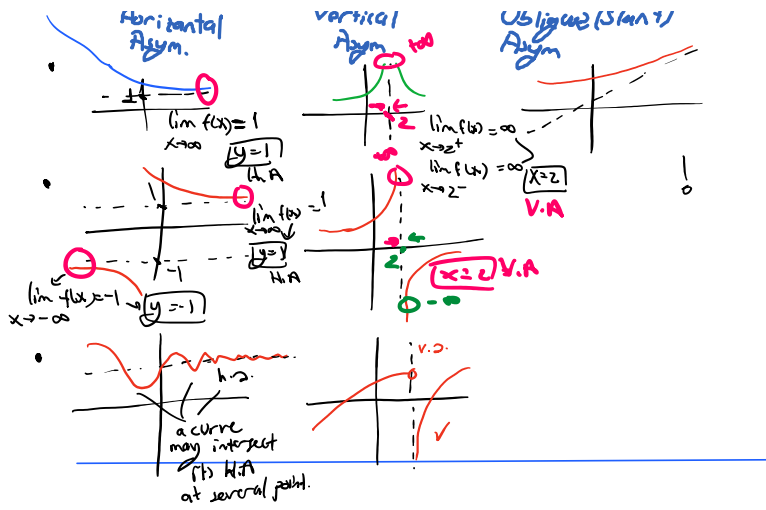 Horizontal
Asym.
Vertical
Asym
Oblique(Slant)
Asym
+∞
1
lim f(x) = 1
x→∞
y=1
H.A
2
lim f(x) = ∞
x→2⁺
lim f(x) = ∞
x→2⁻
x=2
V.A
!
1
lim f(x) = 1
x→∞
y=1
H.A
-1
lim f(x) = -1 → y=-1
x→-∞
∞
2
x=2 V.A
-∞
h.a.
a curve
may intersect
its H.A
at several point.
v.a.